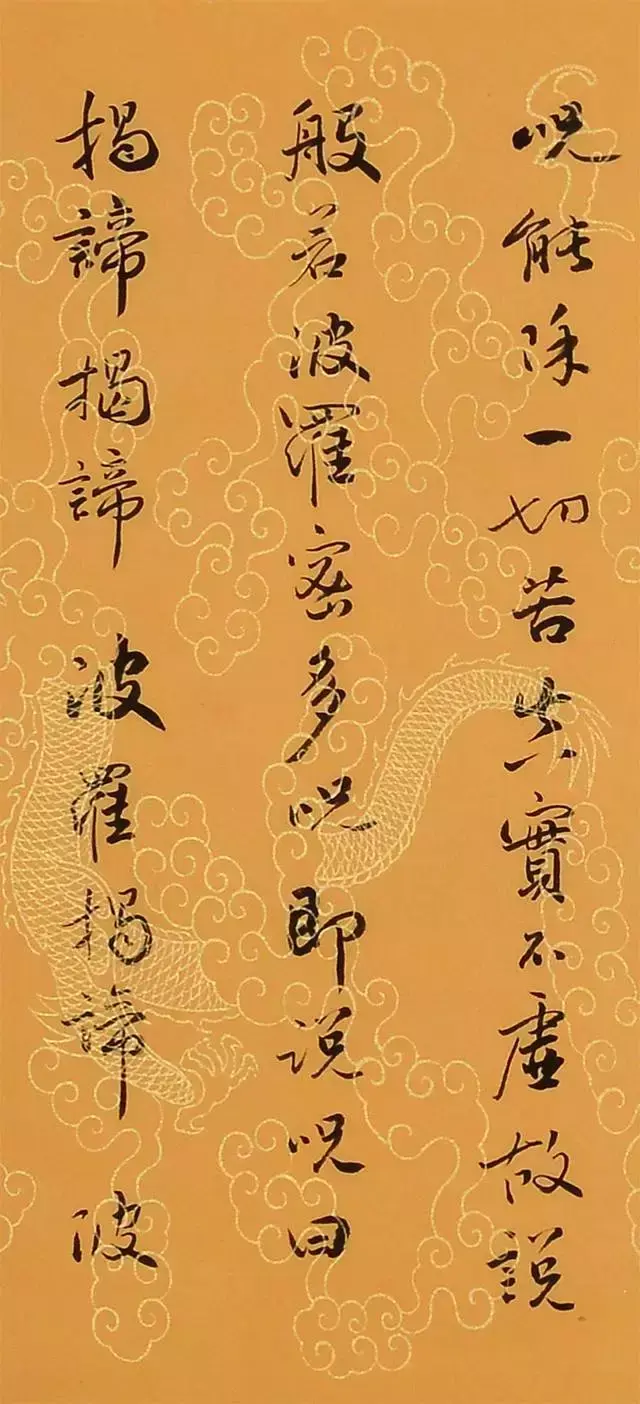 呪能除一切苦真實不虛故說
般若波羅密多呪即説呪曰
揭諦揭諦波羅揭諦波